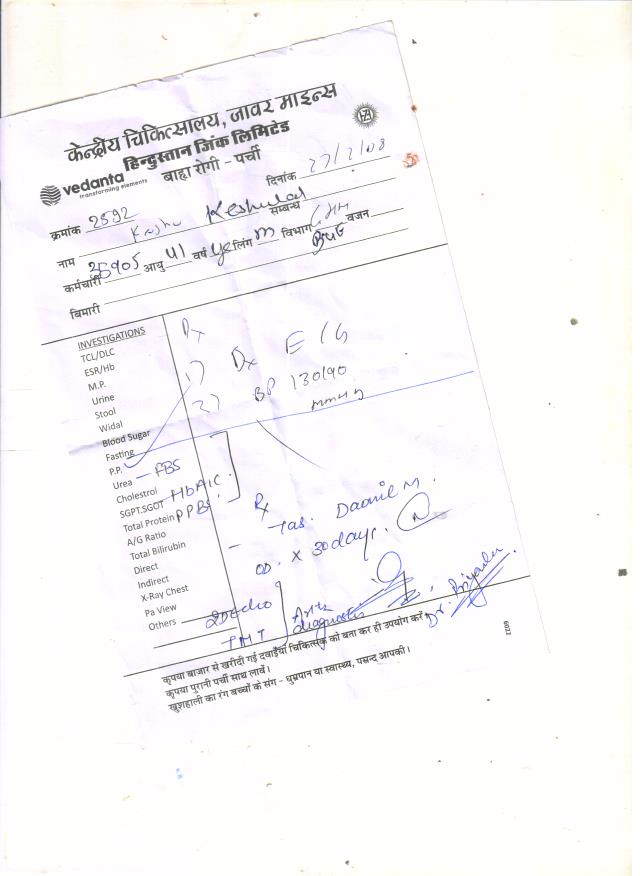 केन्द्रीय चिकित्सालय, जावर माइन्स
हिन्दुस्तान जिंक लिमिटेड
vedanta
transforming elements
बाह्य रोगी - पर्ची
दिनांक 27/2/08
क्रमांक 2592
नाम Keshulal सम्बन्ध
कर्मचारी 25905 आयु 41 वर्ष लिंग m विभाग वजन
बिमारी
INVESTIGATIONS
TCL/DLC
ESR/Hb
M.P.
Urine
Stool
Widal
Blood Sugar
Fasting
P.P.
Urea
Cholestrol
SGPT.SGOT
Total Protein
A/G Ratio
Total Bilirubin
Direct
Indirect
X-Ray Chest
Pa View
Others
1) ECG
2) BP 130/90
mmHg
FBS
HbA1C
PPBS
Rx
Tab. Daonil M.
OD. x 30 days.
2D Echo
TMT
diagnostic
कृपया बाजार से खरीदी गई दवाईयां चिकित्सक को बता कर ही उपयोग करें।
कृपया पुरानी पर्ची साथ लावें।
खुशहाली का रंग बच्चों के संग - धुम्रपान या स्वास्थ्य, पसन्द आपकी।
6022